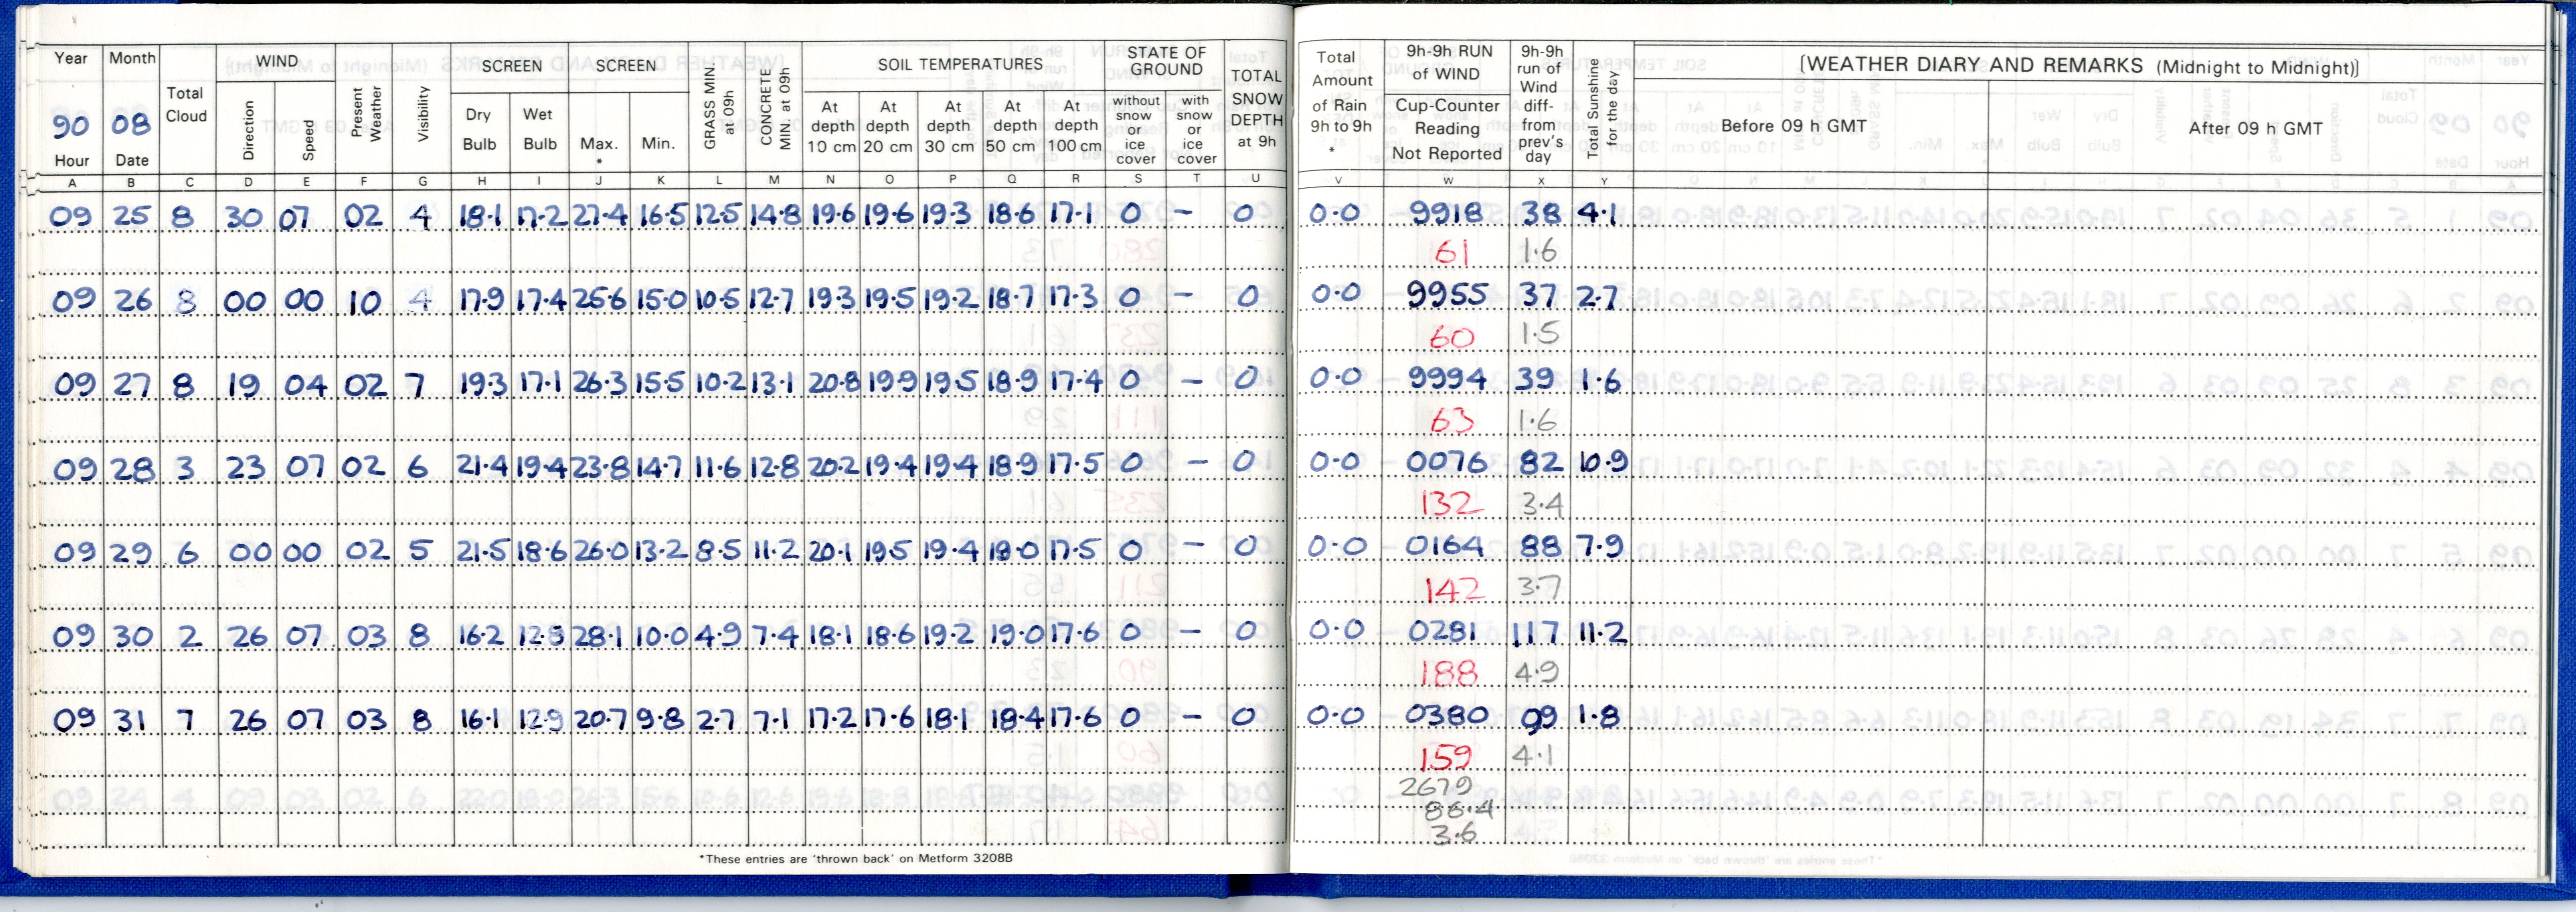 Year Month WIND SCREEN SCREEN SOIL TEMPERATURES STATE OF GROUND
90 08 Total Cloud Direction Speed Present Weather Visibility Dry Bulb Wet Bulb Max. * Min. GRASS MIN. at 09h CONCRETE MIN. at 09h At depth 10 cm At depth 20 cm At depth 30 cm At depth 50 cm At depth 100 cm without snow or ice cover with snow or ice cover TOTAL SNOW DEPTH at 9h
Hour Date
Total Amount of Rain 9h to 9h * 9h-9h RUN of WIND Cup-Counter Reading Not Reported 9h-9h run of Wind diff- from prev's day Total Sunshine for the day [WEATHER DIARY AND REMARKS (Midnight to Midnight)]
Before 09 h GMT After 09 h GMT
A B C D E F G H I J K L M N O P Q R S T U V W X Y
09 25 8 30 07 02 4 18.1 17.2 27.4 16.5 12.5 14.8 19.6 19.6 19.3 18.6 17.1 0 – 0 0.0 9918 38 4.1
61 1.6
09 26 8 00 00 10 4 17.9 17.4 25.6 15.0 10.5 12.7 19.3 19.5 19.2 18.7 17.3 0 – 0 0.0 9955 37 2.7
60 1.5
09 27 8 19 04 02 7 19.3 17.1 26.3 15.5 10.2 13.1 20.8 19.9 19.5 18.9 17.4 0 – 0 0.0 9994 39 1.6
63 1.6
09 28 3 23 07 02 6 21.4 19.4 23.8 14.7 11.6 12.8 20.2 19.4 19.4 18.9 17.5 0 – 0 0.0 0076 82 10.9
132 3.4
09 29 6 00 00 02 5 21.5 18.6 26.0 13.2 8.5 11.2 20.1 19.5 19.4 19.0 17.5 0 – 0 0.0 0164 88 7.9
142 3.7
09 30 2 26 07 03 8 16.2 28.1 10.0 4.9 7.4 18.1 18.6 19.2 19.0 17.6 0 – 0 0.0 0281 117 11.2
188 4.9
09 31 7 26 07 03 8 16.1 12.9 20.7 9.8 2.7 7.1 17.2 17.6 18.1 18.4 17.6 0 – 0 0.0 0380 99 1.8
159 4.1
2679
86.4
3.6
*These entries are 'thrown back' on Metform 3208B